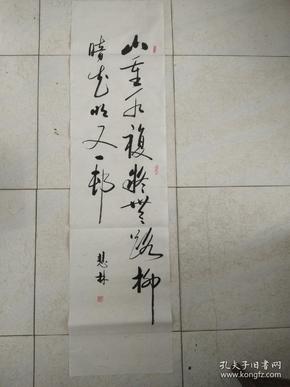 山重水複疑無路柳
暗花明又一邨
慧林
孔夫子旧书网